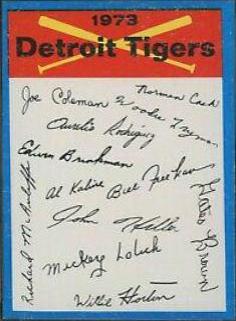 1973
Detroit Tigers
Joe Coleman
Norman Cash
Woodie Fryman
Aurelio Rodriguez
Edwin Brinkman
Al Kaline
Bill Freehan
John Hiller
Mickey Lolich
Willie Horton
Richard McAuliffe
Gates Brown